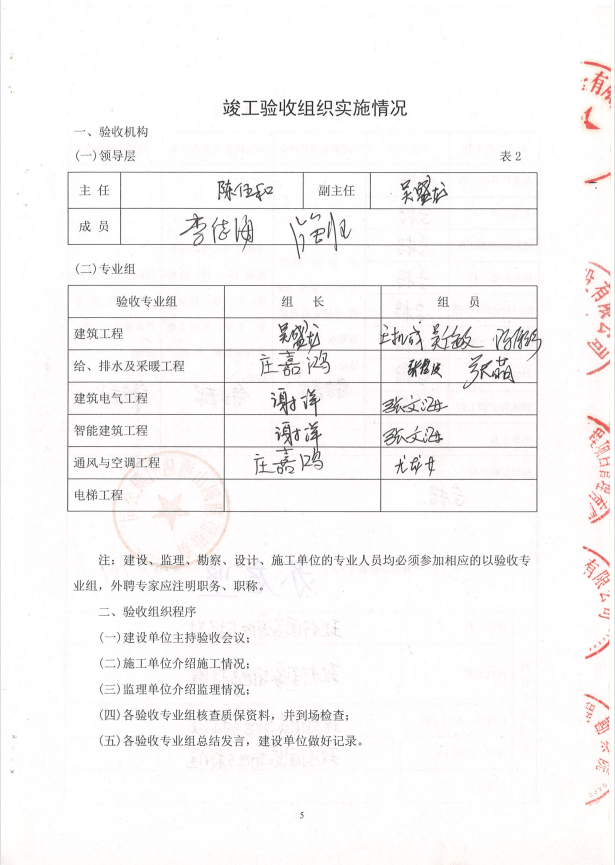 竣工验收组织实施情况
一、验收机构
(一)领导层 表2
主 任 陈伍和 副主任 吴盛龙
成 员
(二)专业组
验收专业组 组 长 组 员
建筑工程 吴盛龙
给、排水及采暖工程 庄嘉鸿
建筑电气工程 谢洋 张文海
智能建筑工程 谢洋 张文海
通风与空调工程 庄嘉鸿
电梯工程
注：建设、监理、勘察、设计、施工单位的专业人员均必须参加相应的以验收专
业组，外聘专家应注明职务、职称。
二、验收组织程序
(一)建设单位主持验收会议；
(二)施工单位介绍施工情况；
(三)监理单位介绍监理情况；
(四)各验收专业组核查质保资料，并到场检查；
(五)各验收专业组总结发言，建设单位做好记录。
5